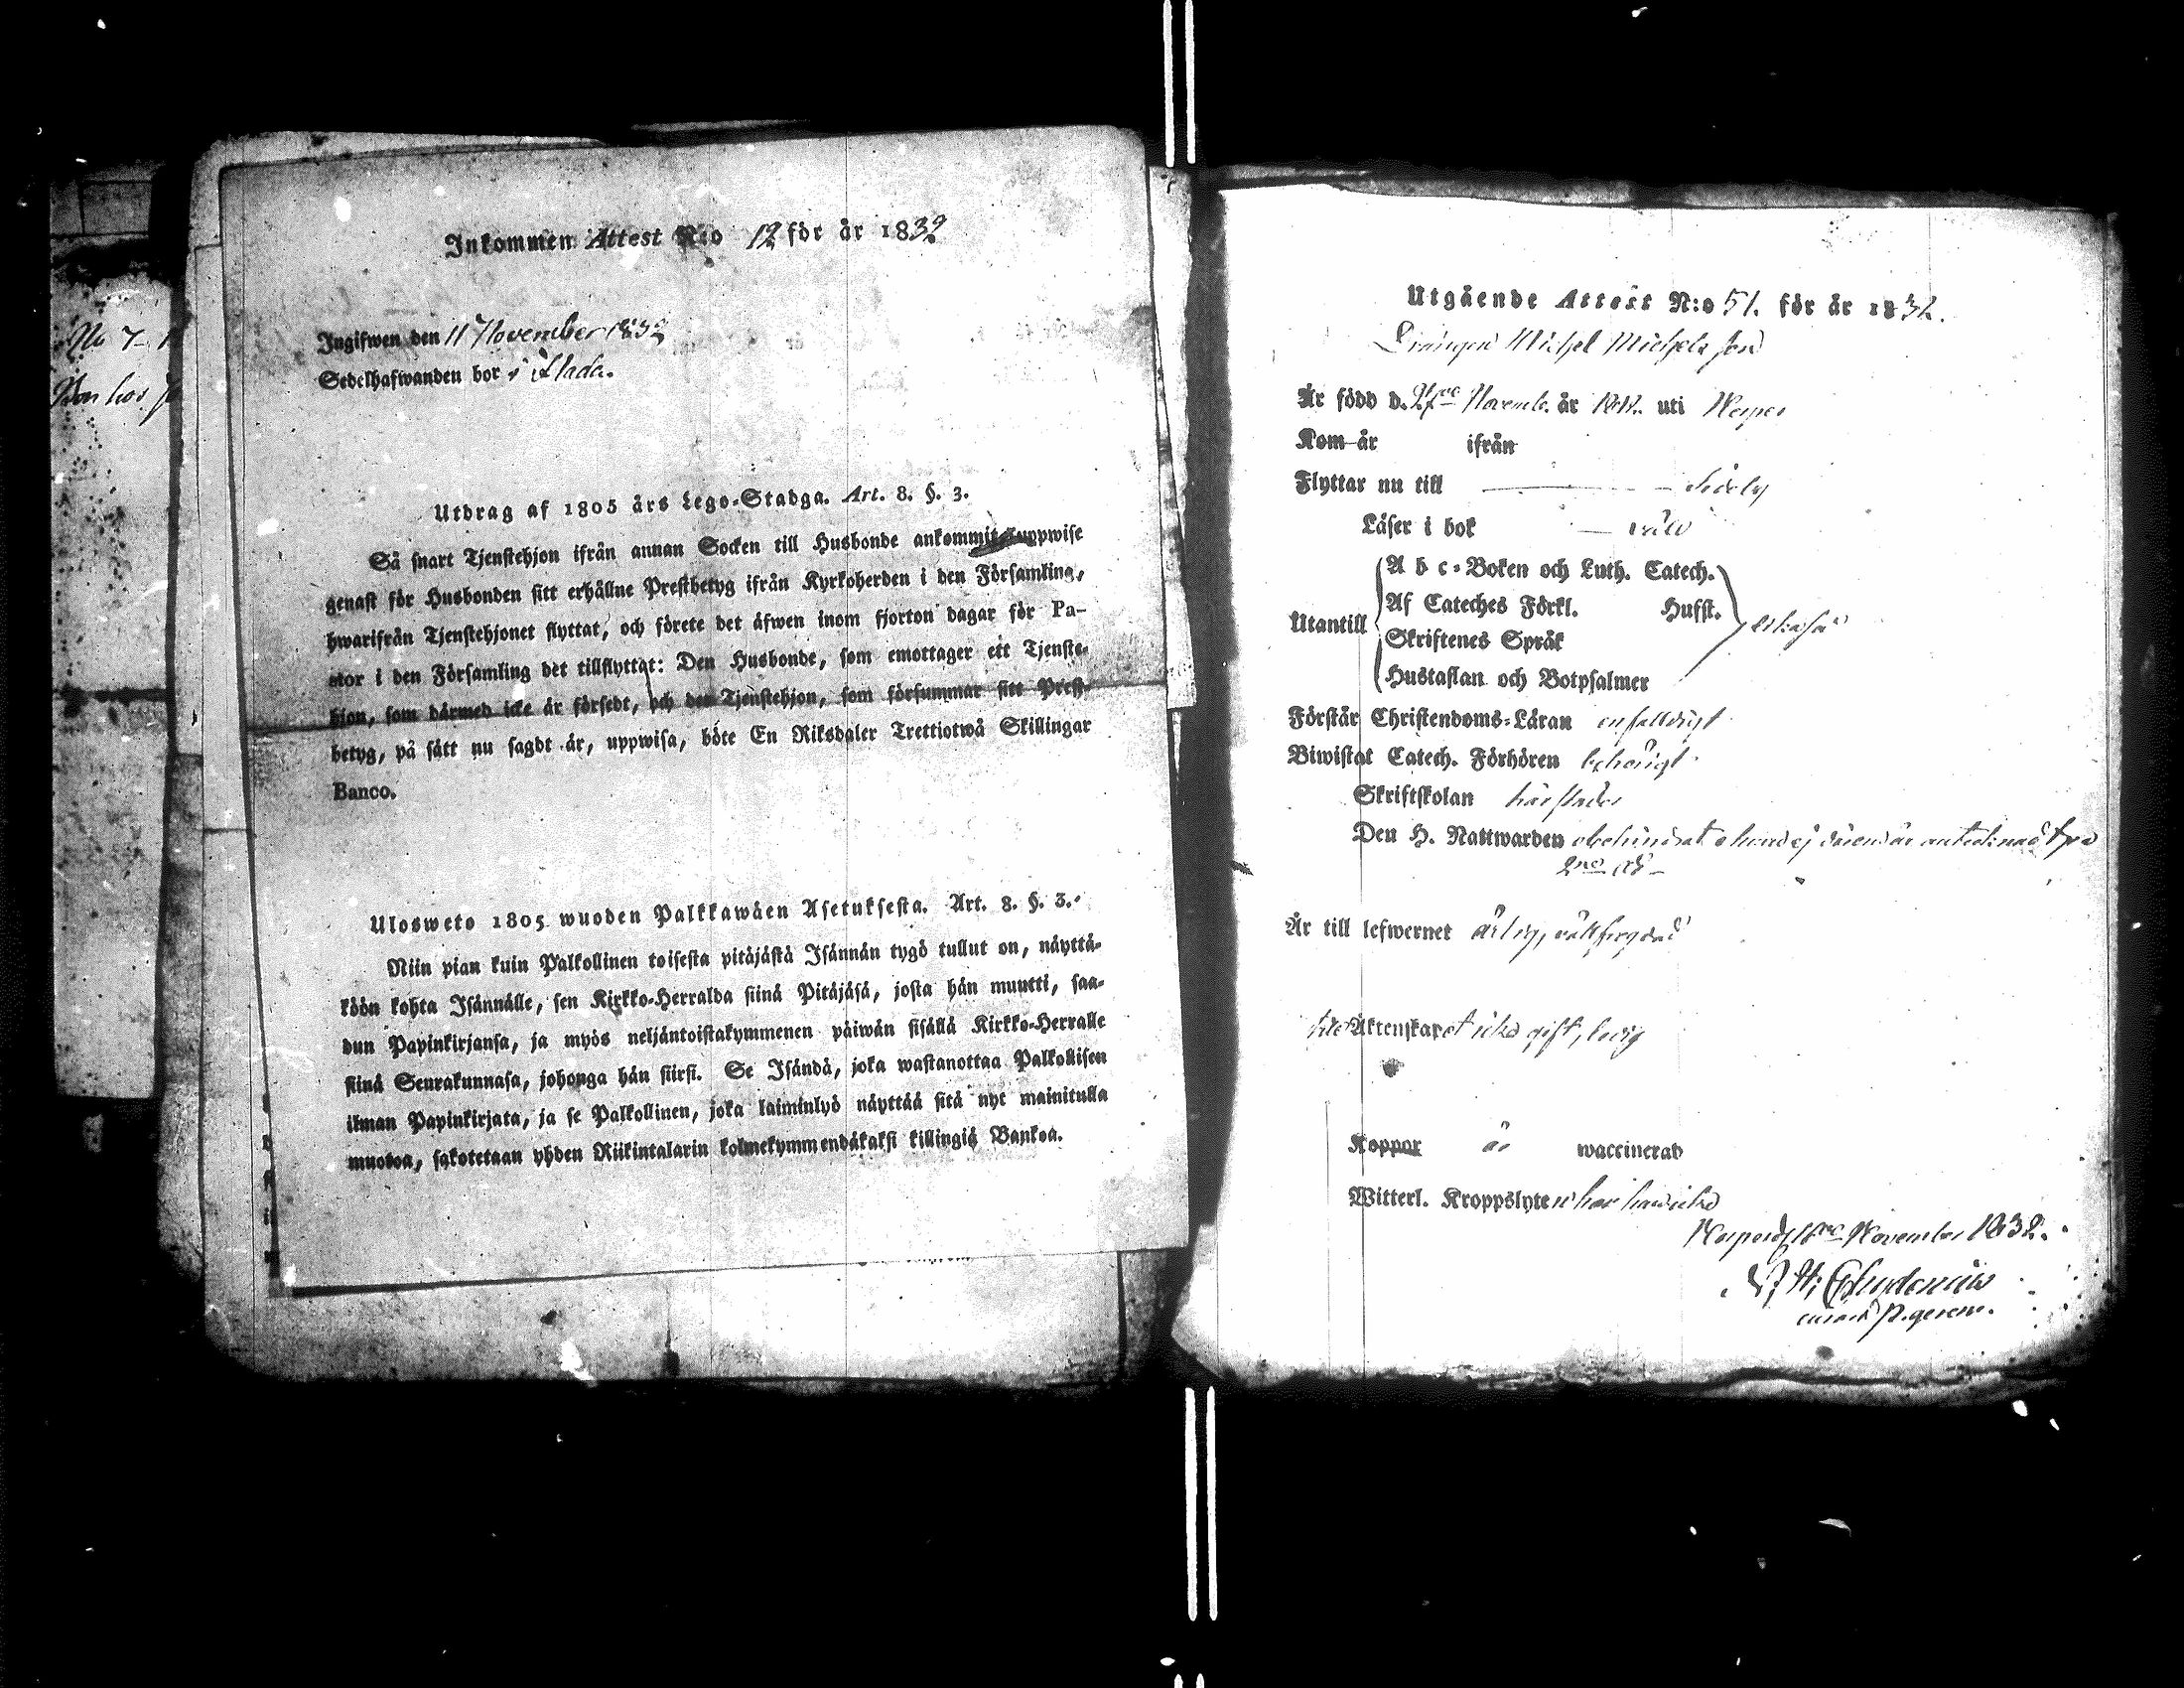 No 7
Bor hos
Inkommen Attest N:o 12 för år 1832
Ingifwen den 11 November 1832
Sedelhafwanden bor i Slada.
Utdrag af 1805 års Lego-Stadga. Art. 8. §. 3.
Så snart Tjenstehjon ifrån annan Socken till Husbonde ankommit, uppwise
genast för Husbonden sitt erhållne Prestbetyg ifrån Kyrkoherden i den Församling,
hwarifrån Tjenstehjonet flyttat, och förete det äfwen inom fjorton dagar för Pa-
stor i den Församling det tillflyttat: Den Husbonde, som emottager ett Tjenste-
hjon, som därmed icke är försedt, och den Tjenstehjon, som försummar sitt Prest-
betyg, på sätt nu sagdt är, uppwisa, böte En Riksdaler Trettiotwå Skillingar
Banco.
Ulosweto 1805 wuoden Palkkawäen Asetuksesta. Art. 8. §. 3.
Niin pian kuin Palkollinen toisesta pitäjästä Isännän tygö tullut on, näyttä-
köön kohta Isännälle, sen Kirkko-Herralda siinä Pitäjäsä, josta hän muutti, saa-
dun Papinkirjansa, ja myös neljäntoistakymmenen päiwän sisällä Kirkko-Herralle
siinä Seurakunnasa, johonga hän siirsi. Se Isändä, joka wastanottaa Palkollisen
ilman Papinkirjata, ja se Palkollinen, joka laiminlyö näyttää sitä nyt mainitulla
muotoa, sakotetaan yhden Riikintalarin kolmekymmendäkaksi killingiä Bankoa.
Utgående Attest N:o 51. för år 1832.
Drängen Michel Michels son
Är född d. 27de Novemb. år uti Nerpes
Kom år ifrån
Flyttar nu till Sideby
Läser i bok
Utantill
A b c-Boken och Luth. Catech.
Af Cateches Förkl. Husst.
Skriftenes Språk
Hustaflan och Botpsalmer
Förstår Christendoms-Läran enfalldigt
Biwistat Catech. Förhören behörigt
Skriftskolan härstädes
Den H. Nattwarden obehindrat ehuru ej är antecknad
Är till lefwernet ärlig, wälfrejdad
Äktenskapet icke gift, ledig
Koppor är waccinerad
Witterl. Kroppslyten har han icke
Nerpes d. November 1832.